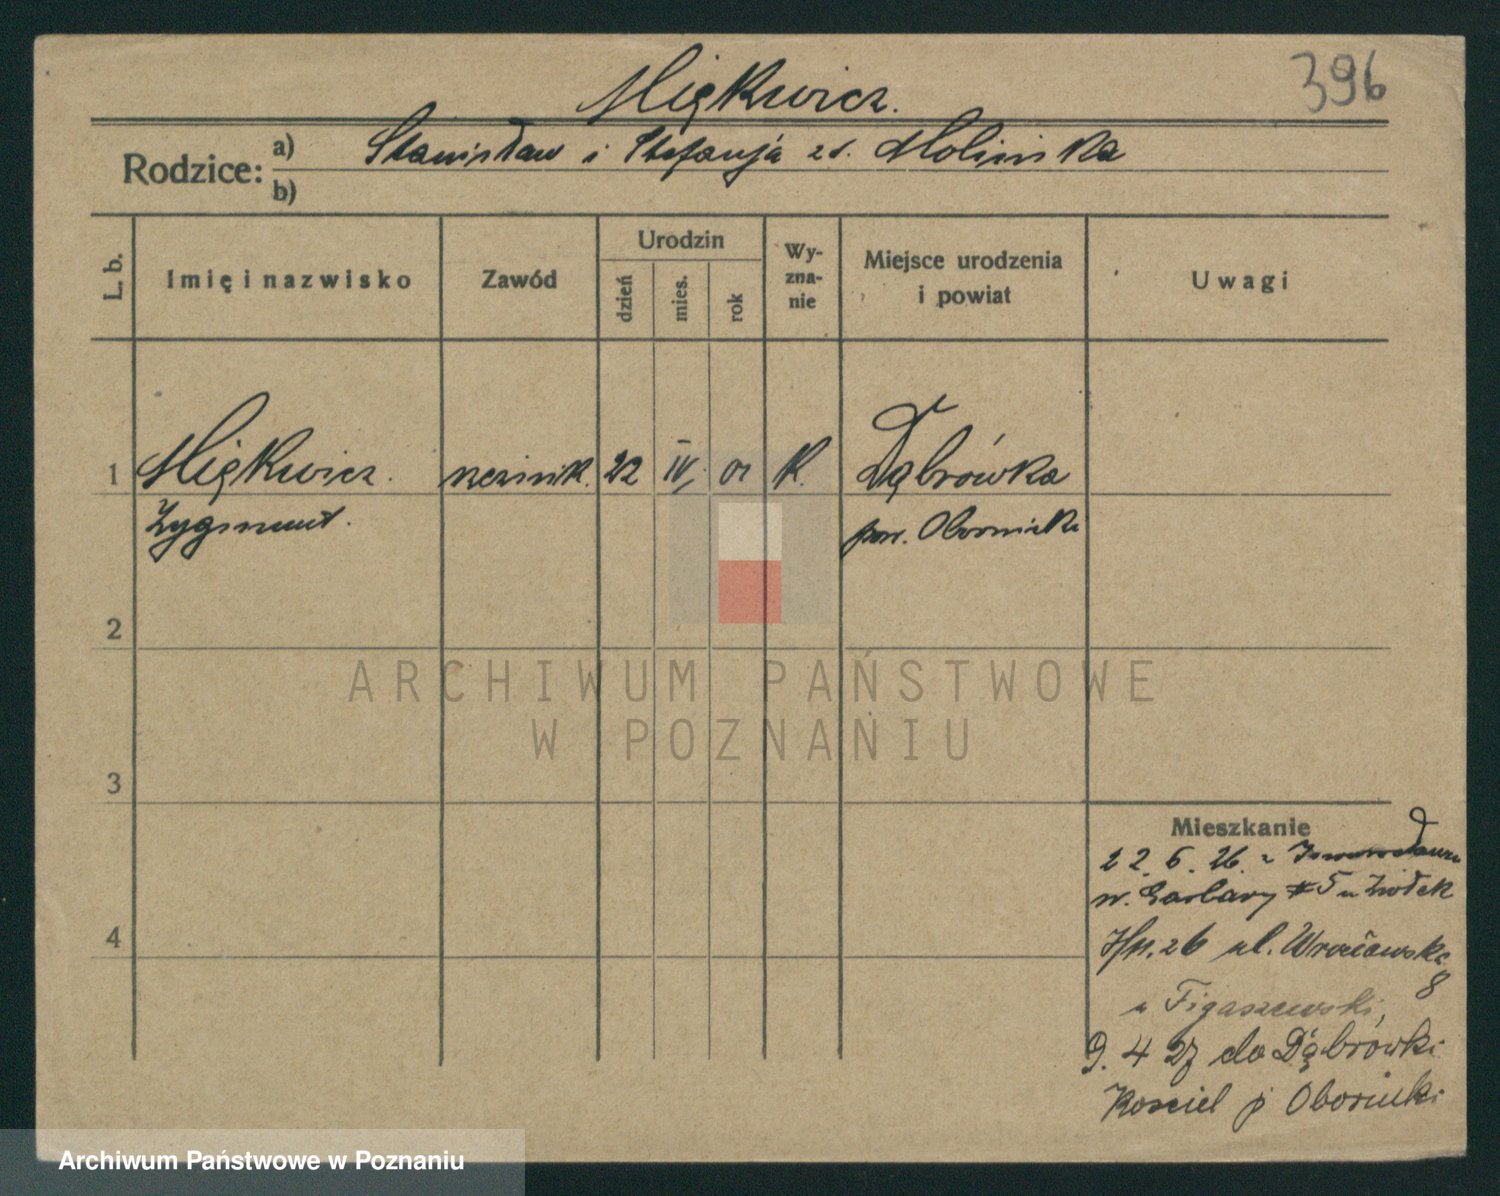 396
Miękwicz.
Rodzice: a) Stanisław i Stefanja zd. Molińska
b)
L. b. Imię i nazwisko Zawód Urodzin dzień mies. rok Wy-zna-nie Miejsce urodzenia i powiat Uwagi
1 Miękwicz. 22 IV. 01 k. Dąbrówka
Zygmunt. pow. Obornicki
2
3
4
Mieszkanie
22.6.26. z Inowrocławia
w. Garbary # 5 u Ziółek
26 ul. Wrocławska
8
u Figaszewski,
9. 4 27 do Dąbrówki
Kościel p Oborniki
ARCHIWUM PAŃSTWOWE
W POZNANIU
Archiwum Państwowe w Poznaniu